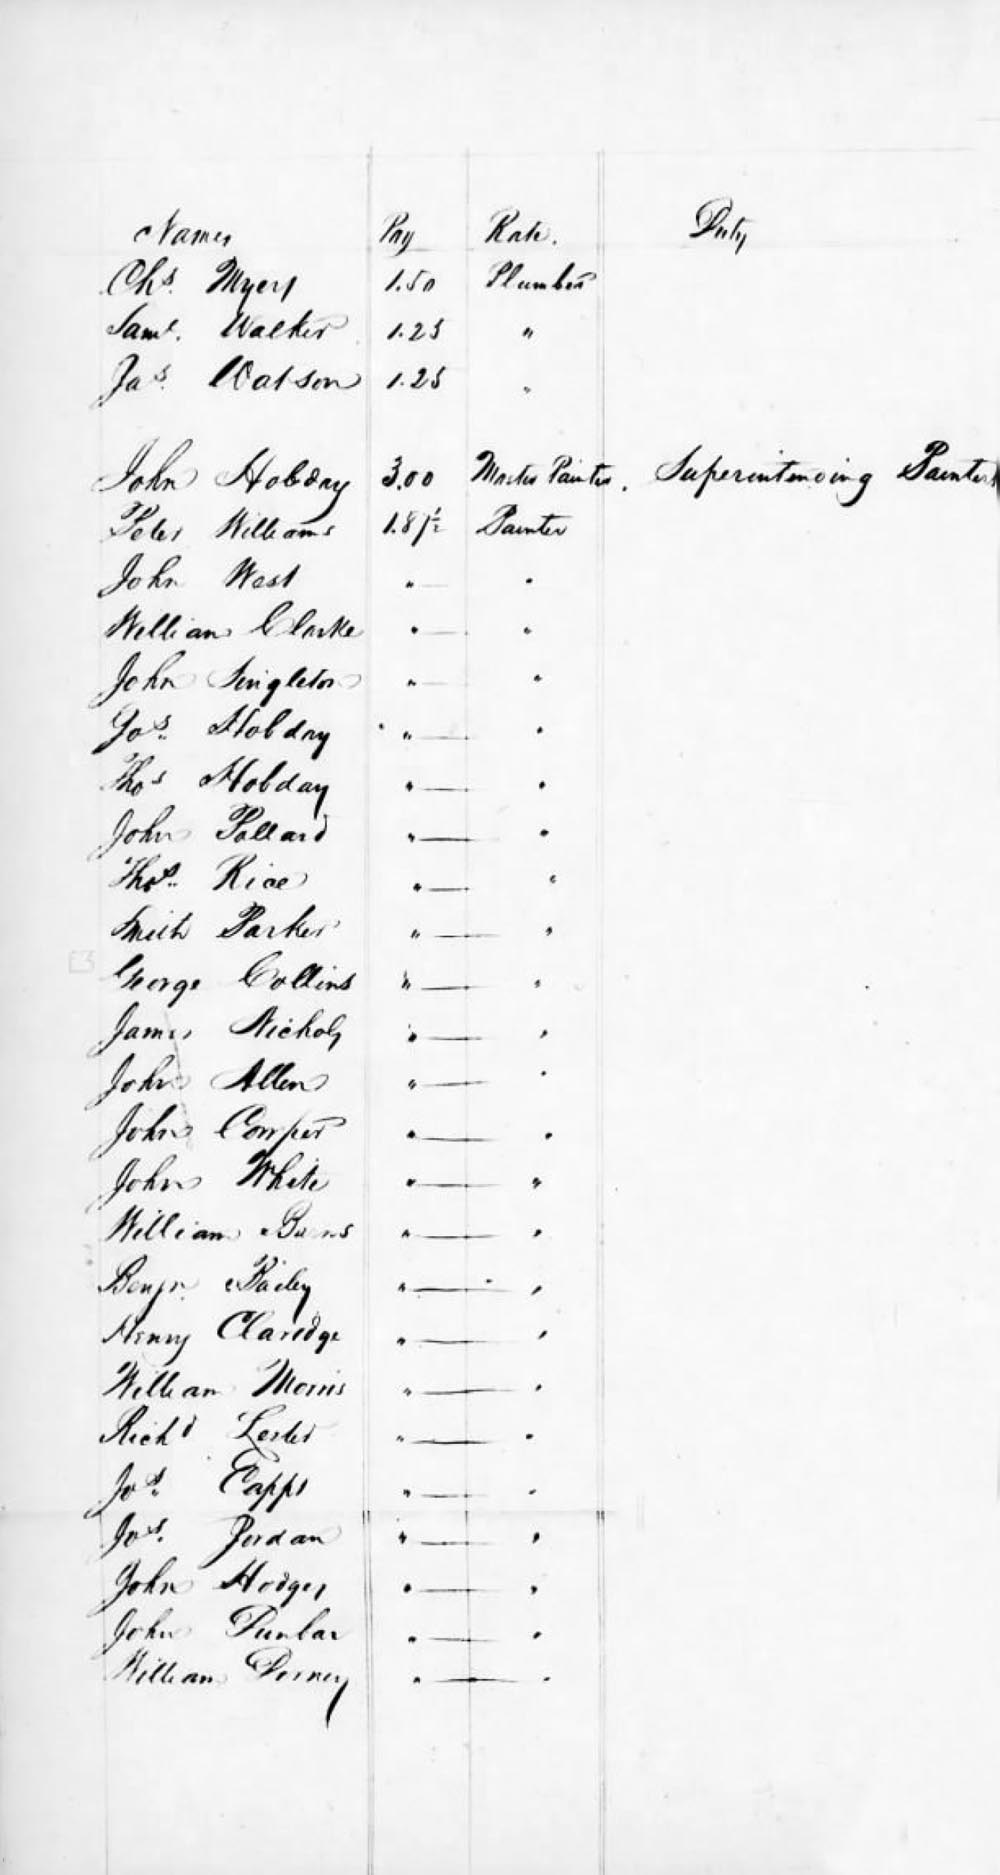 Names Pay Rate. Duty
Chs. Myers 1.50 Plumber
Saml. Walker 1.25 "
Jas. Watson 1.25 "
John Hobday 3.00 Master Painter. Superintending Painter
Peter Williams 1.87½ Painter
John West " — "
William Clarke " — "
John Singleton " — "
Jos. Hobday " — "
Thos Hobday " — "
John Pollard " — "
Thos. Rice " — "
Smith Parker " — "
George Collins " — "
James Nichols " — "
John Allen " — "
John Cowper " — "
John White " — "
William Burns " — "
Benjn. Bailey " — "
Henry Claridge " — "
William Morris " — "
Richd Lester " — "
Jos. Capps " — "
Jos. Jordan " — "
John Hodges " — "
John Dunbar " — "
William Dorney " — "